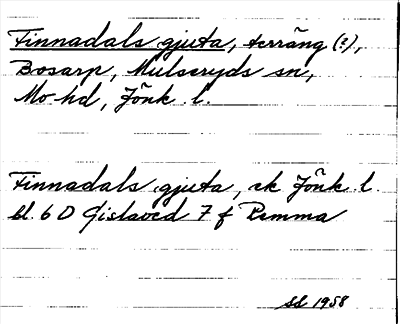 Finnadals gjuta, terräng (?),
Bosarp, Mulseryds sn,
Mo hd, Jönk. l.
Finnadals gjuta, ek Jönk. l.
bl. 6 D Gislaved 7 f Remma
sd 1958